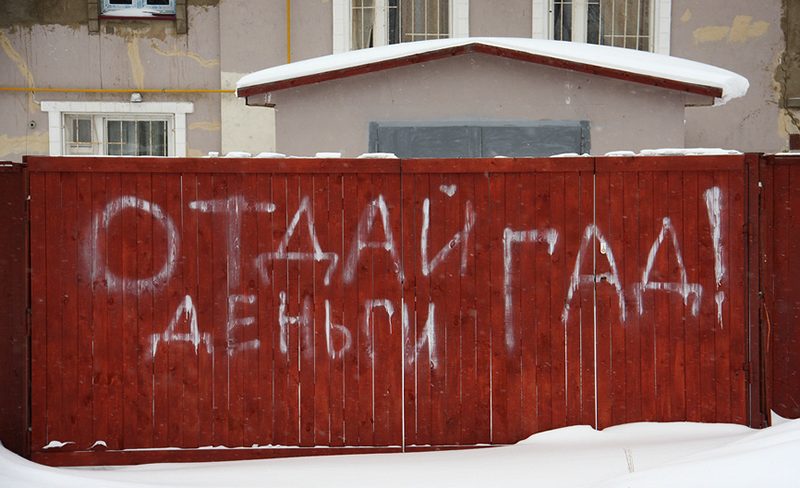 ОТДАЙ ГАД!
ДЕНЬГИ